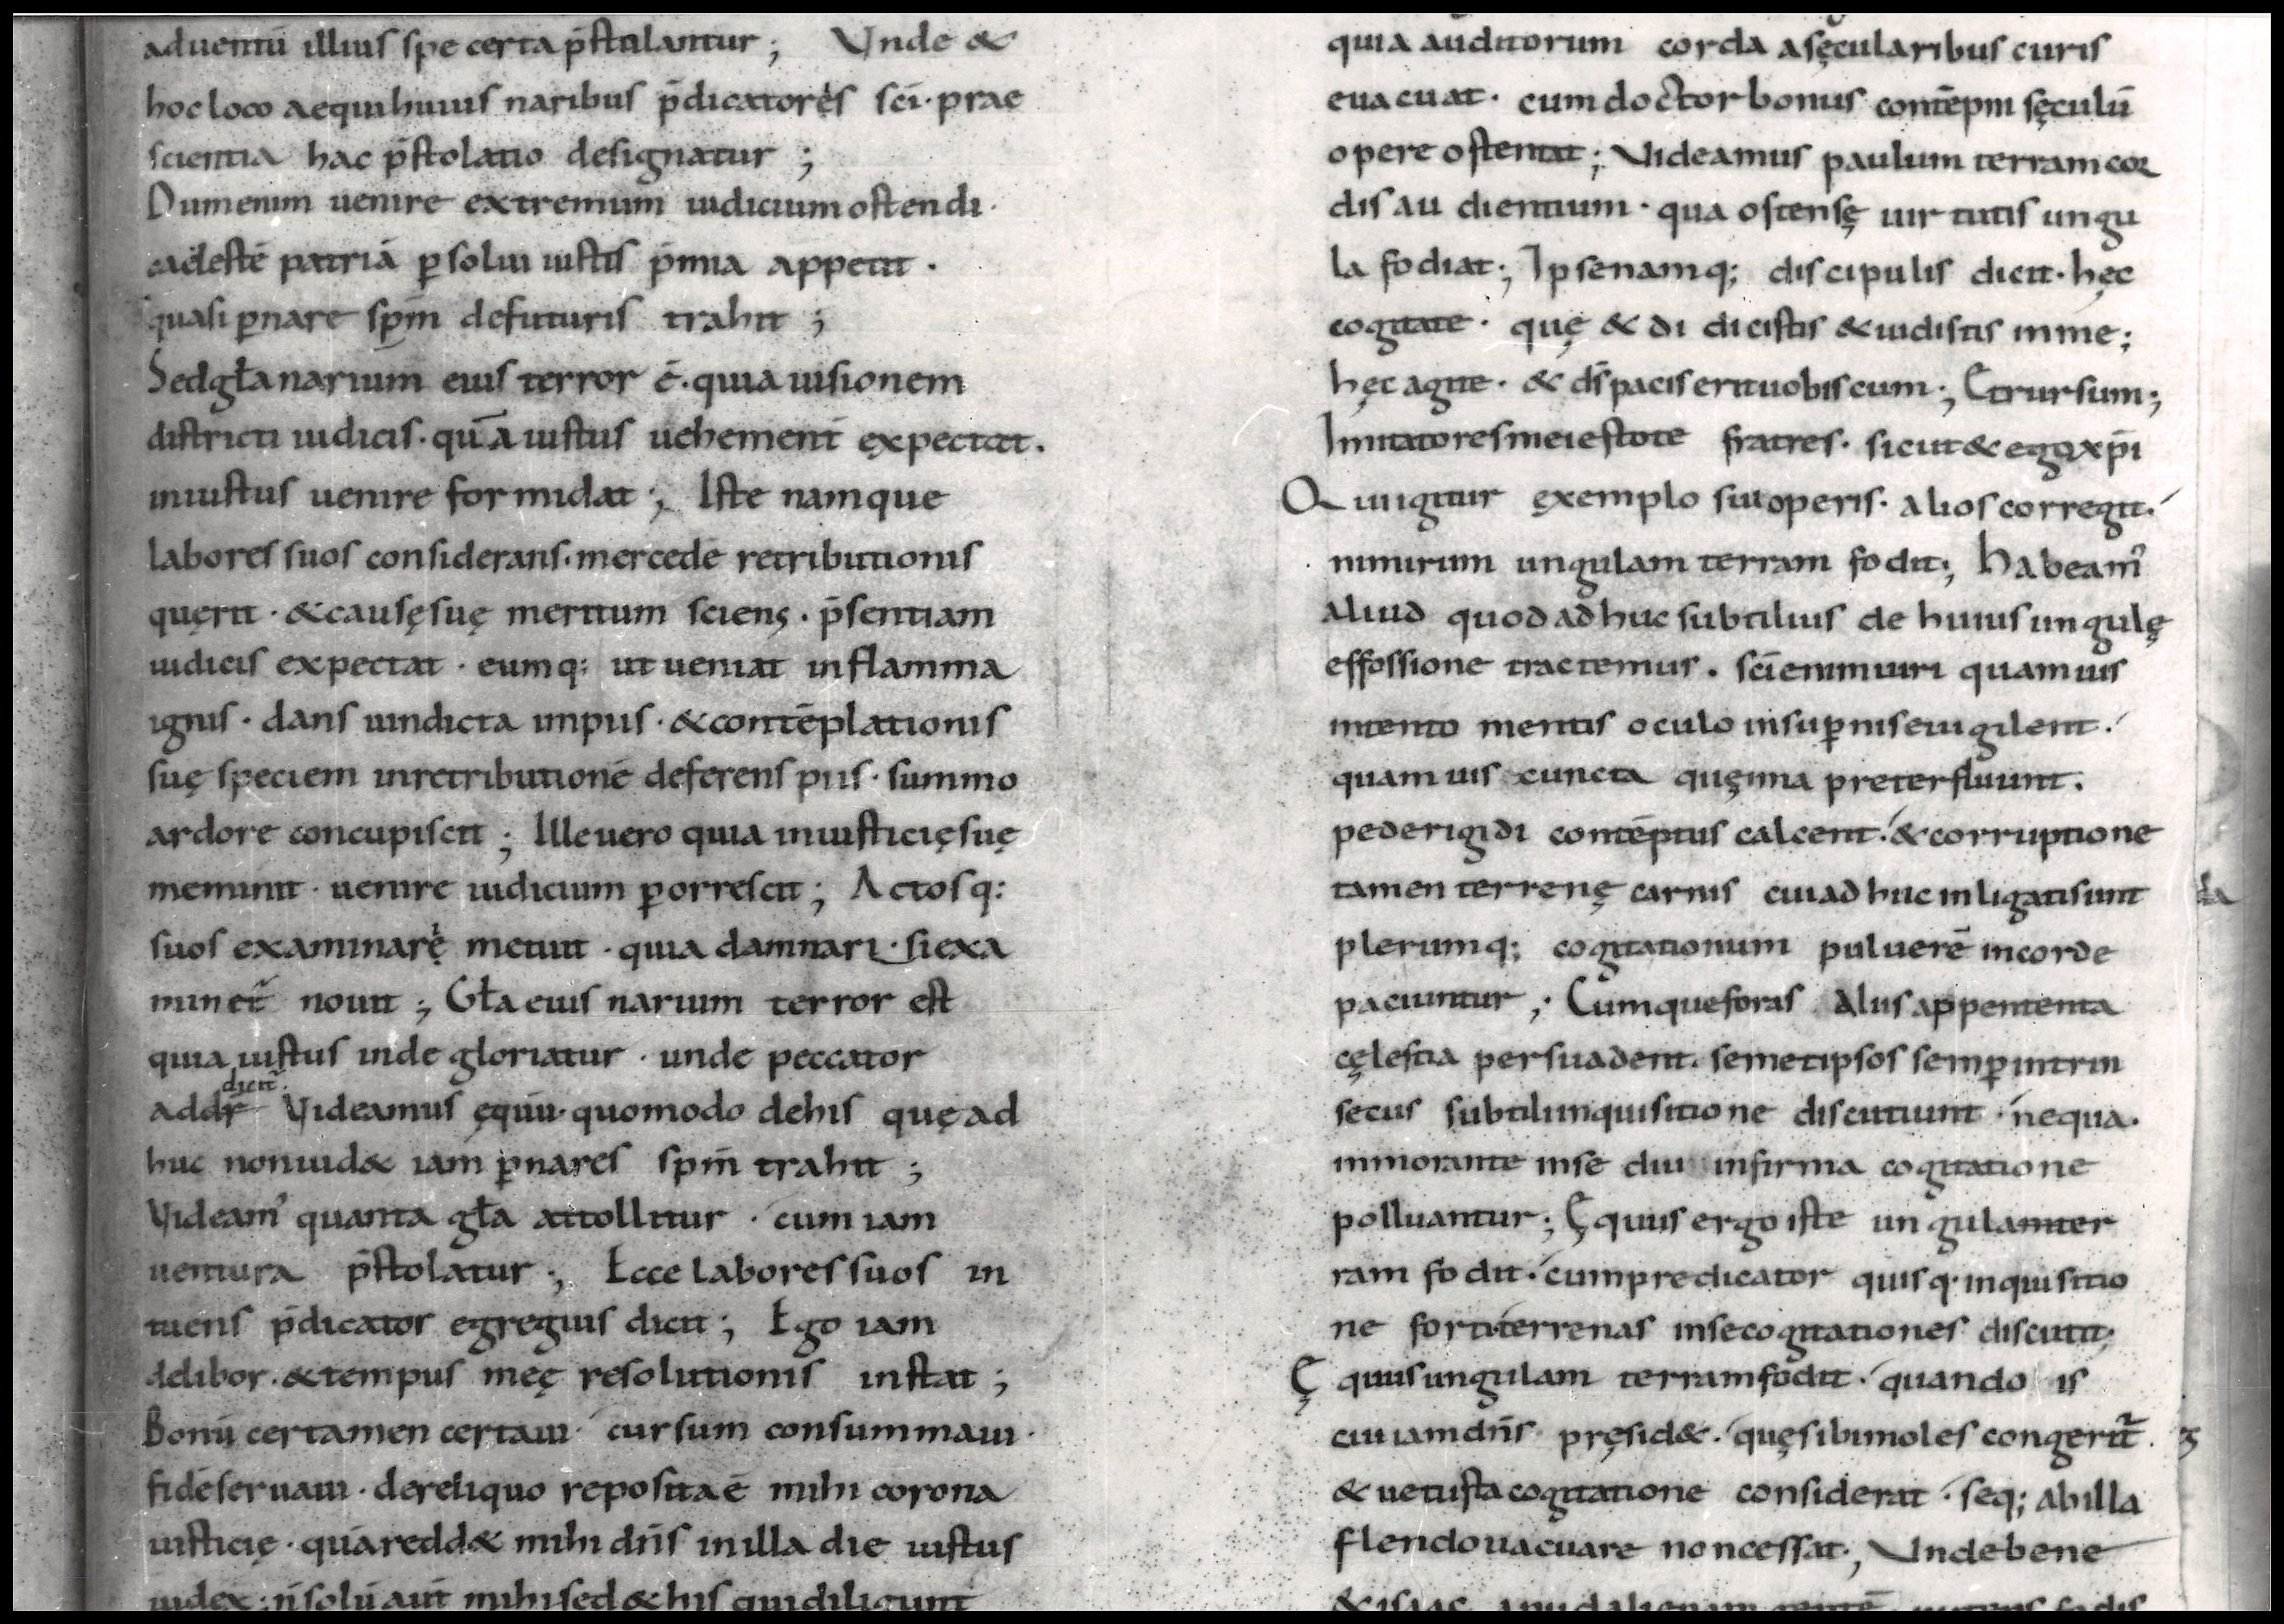 aduentū illius spe certa p̄stolantur; Vnde &
hoc loco aequi huius naribus p̄dicatores sc̄i prae
scientia hac p̄stolatio designatur;
Dum enim uenire extremum iudicium ostendi·
caelestē patriā ꝑsolui iustis p̄mia appetit·
quasi ꝑ nare sp̄m de futuris trahit;
Sed gła narium eius terror ē· quia uisionem
districti iudicis· quā iustus uehement̄ expectat·
iniustus uenire formidat; Iste namque
labores suos considerans· mercedē retributionis
quęrit· & causę suę meritum sciens· p̄sentiam
iudicis expectat· eumq: ut ueniat in flamma
ignis· dans uindicta impiis· & contēplationis
suę speciem in retributionē deferens piis· summo
ardore concupiscit; Ille uero quia iniusticię suę
meminit· uenire iudicium ꝑorrescit; Actosq:
suos examinare metuit· quia damnari· si exa
minet̄ nouit; Gła eius narium terror est
quia iustus inde gloriatur· unde peccator
dicit̄
addr̄ Videamus ęquū· quomodo de his quę ad
huc non uid& iam ꝑ nares sp̄m trahit;
Videam᾿ quanta gła attollitur· cum iam
uentura p̄stolatur; Ecce labores suos in
tuens p̄dicator egregius dicit; Ego iam
delibor· & tempus meę resolutionis instat;
Bonū certamen certaui· cursum consummaui·
fidē seruaui· de reliquo reposita ē mihi corona
iusticię· quā redd& mihi dn̄s in illa die iustus
iudex; n̄ solū aut̄ mihi sed & his qui diligunt
quia auditorum corda a sęcularibus curis
euacuat· cum doctor bonus contēpni sęculū
opere ostentat; Videamus paulum terram cor
dis audientium· qua ostensę uirtutis ungu
la fodiat; Ipse namq; discipulis dicit· hęc
cogitate· quę & didicistis & uidistis in me;
hęc agite· & ds̄ pacis erit uobiscum; Et rursum;
Imitatores mei estote fratres· sicut & ego xp̄i
Qui igitur exemplo sui operis· alios corregit·
nimirum ungulam terram fodit; Habeam᾿
aliud quod adhuc subtilius de huius ungulę
effossione tractemus. sc̄i enim uiri quamuis
intento mentis oculo in suꝑnis euigilent·
quamuis cuncta quę ima preterfluunt·
pede rigidi contēptus calcent· & corruptione
tamen terrenę carnis cui adhuc inligati sunt
plerumq; cogitationum puluerē in corde
paciuntur; Cumque foras aliis appententa
cęlestia persuadent· semetipsos semꝑ intrin
secus subtili inquisitione discutiunt· ne qua·
inmorante in se diu infirma cogitatione
polluantur; Ęquus ergo iste ungulam ter
ram fodit· cum predicator quisq· inquisitio
ne forti terrenas in se cogitationes discutit;
Ęquus ungulam terram fodit· quando is
cui iam dn̄s pręsid&· quę sibi moles congerit̄·
& uetusta cogitatione considerat· seq; ab illa
flendo uacuare non cessat; Vnde bene
& isaac apud alienam gentē